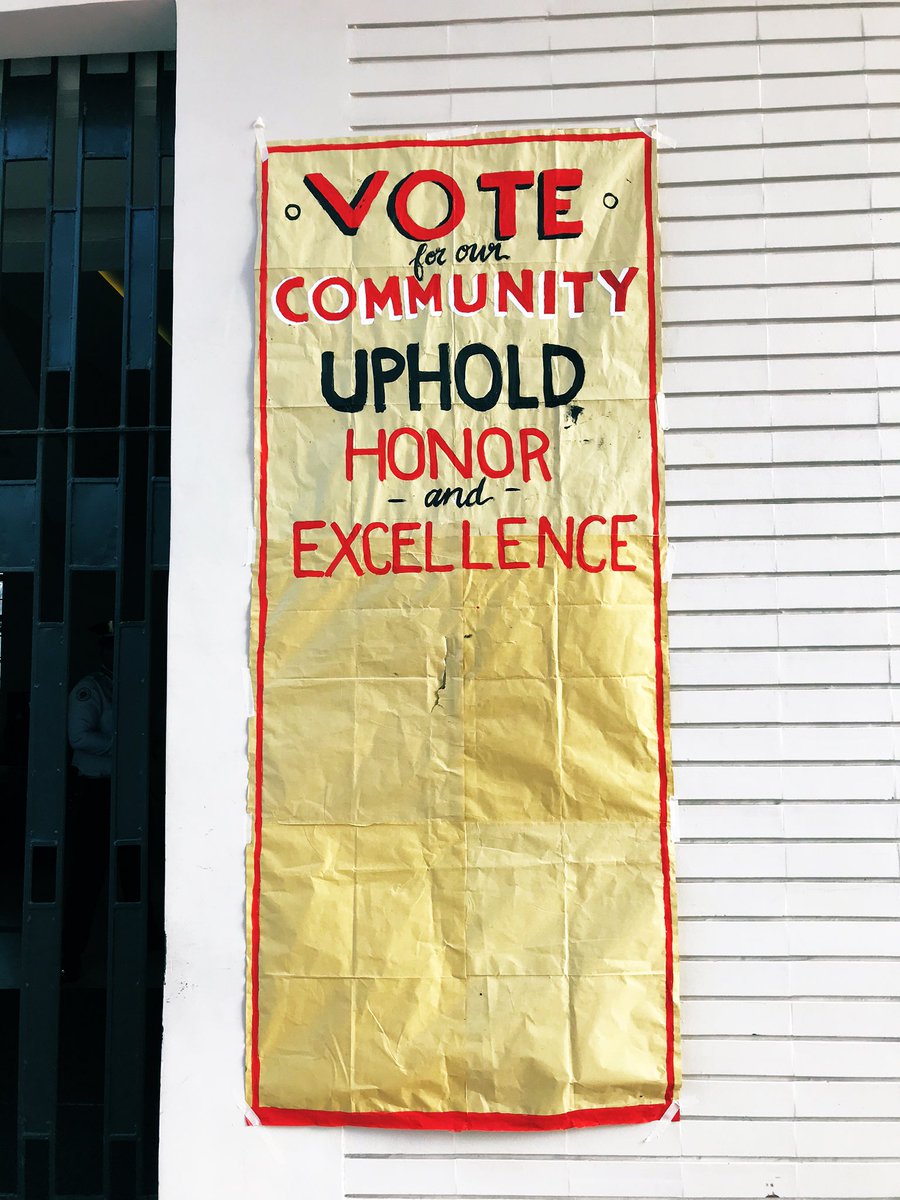 VOTE
for our
COMMUNITY
UPHOLD
HONOR
- and -
EXCELLENCE